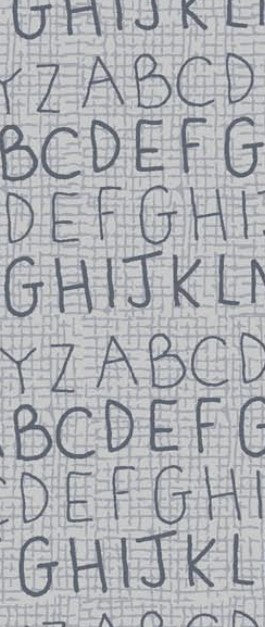 GHIJKL
YZABCD
BCDEFG
DEFGHI
GHIJKL
YZABCD
BCDEFG
DEFGHI
GHIJKL
ABCD